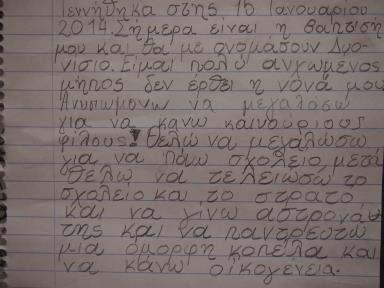 Γεννήθηκα στης 15 Ιανουαριου
2014.Σήμερα είναι η βαπτιση
μου και θα με ονομάσουν Διο-
νισιο. Είμαι πολυ ανχωμενος
μηπος δεν έρθει η νονά μου
Ανυπωμονω να μεγαλοσω
για να κανω καινούριους
φίλους! Θελω να μεγαλωσω
για να πάω σχολειο, μετά
θελω να τελειωσω το
σχολειο και το στρατο
και να γίνω αστροναύ
της και να παντρευτω
μια όμορφη κοπέλα και
να κάνω οίκογένεια.